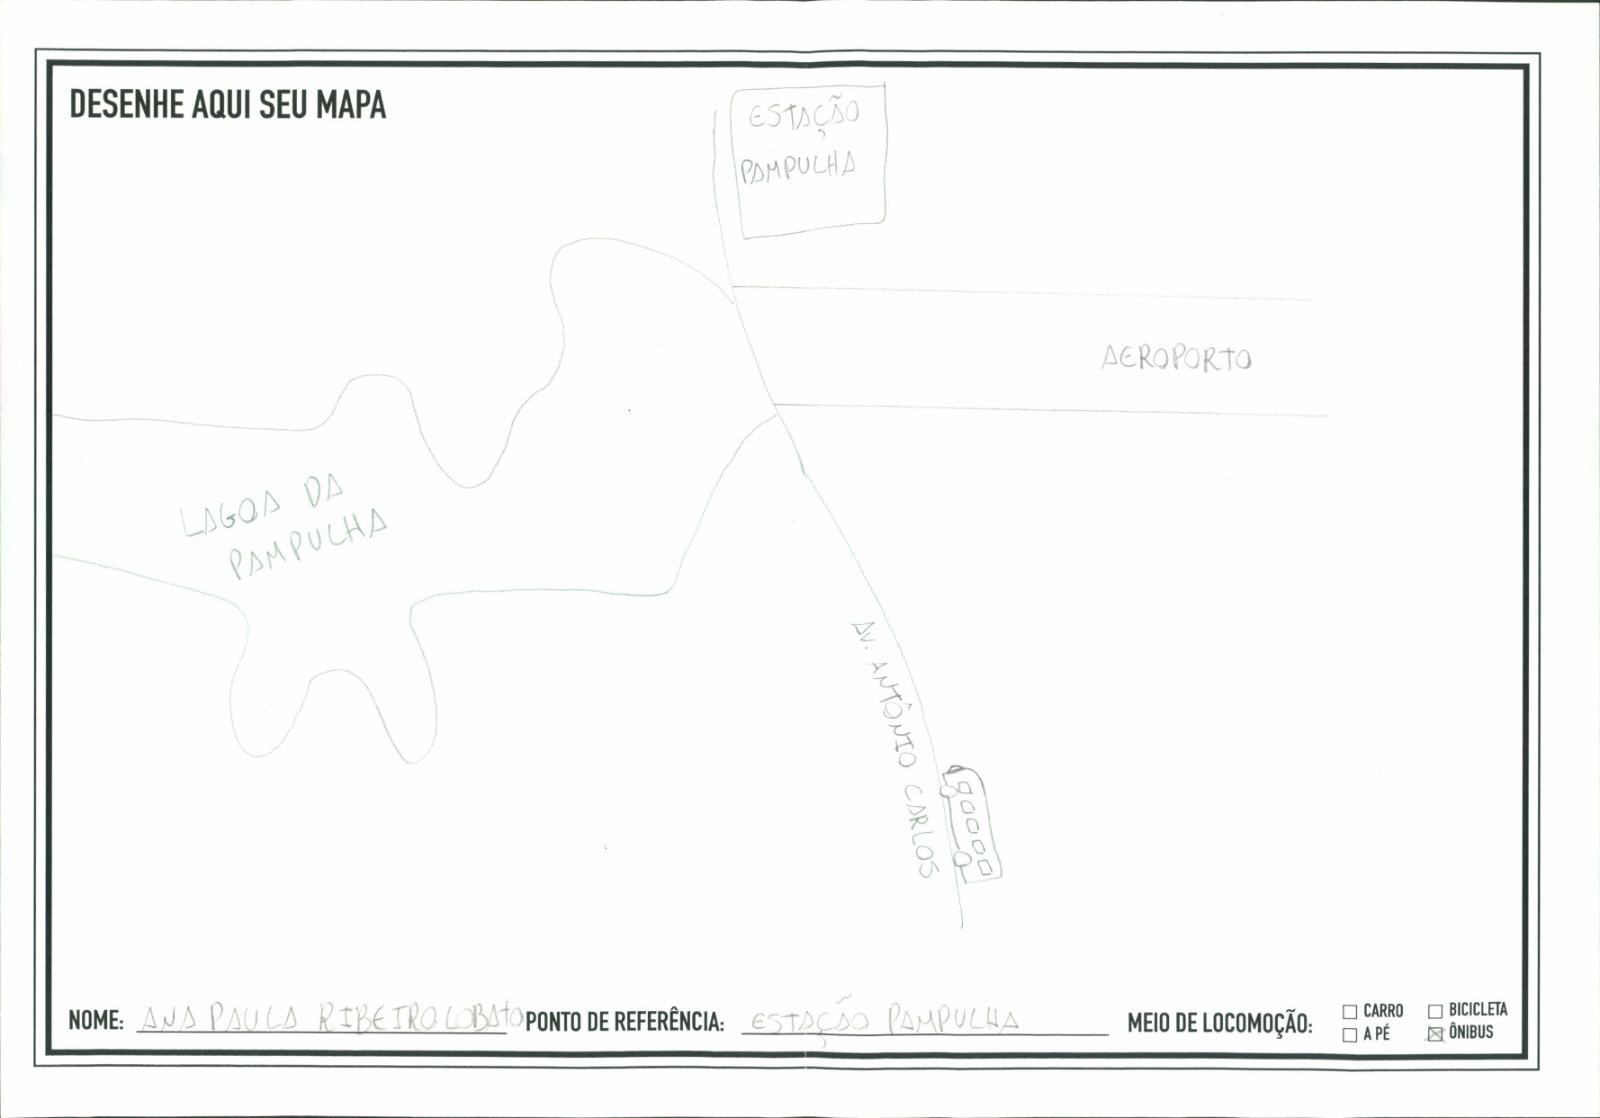 DESENHE AQUI SEU MAPA
ESTAÇÃO
PAMPULHA
AEROPORTO
LAGOA DA
PAMPULHA
AV. ANTÔNIO CARLOS
NOME: ANA PAULA RIBEIRO LOBATO PONTO DE REFERÊNCIA: ESTAÇÃO PAMPULHA MEIO DE LOCOMOÇÃO:
CARRO BICICLETA
A PÉ ÔNIBUS